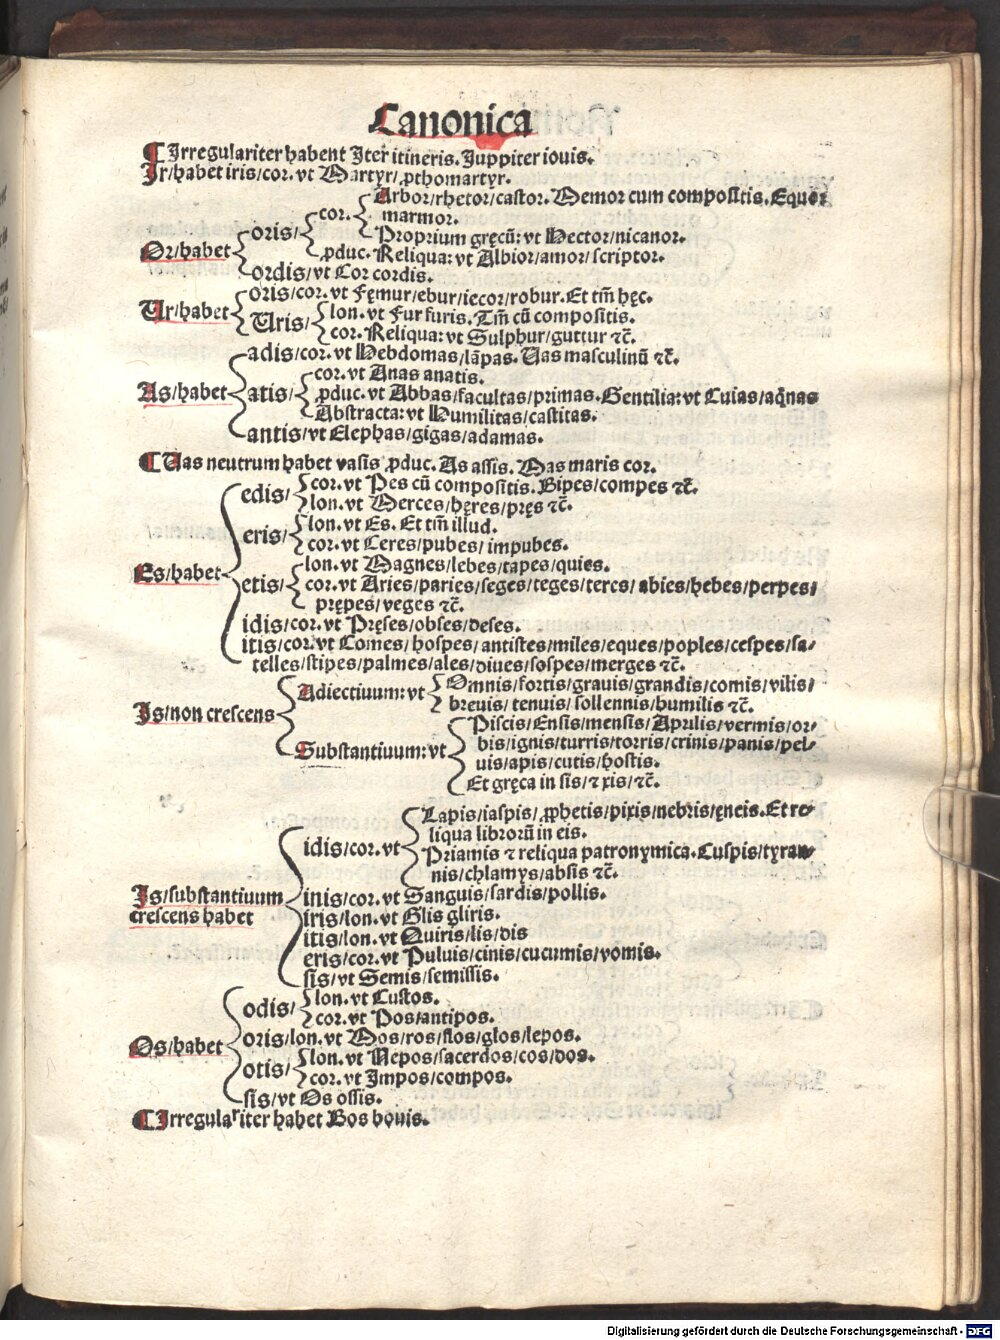 Canonica
¶ Irregulariter habent Iter itineris. Iuppiter iouis.
Ir/habet iris/cor. vt Martyr/ ꝓthomartyr.
Or/habet oris/ cor. Arbor/rhetor/castor. Memor cum compositis. Equor
marmor.
Proprium gręcũ: vt Hector/nicanor.
ꝓduc. Reliqua: vt Albior/amor/scriptor.
ordis/vt Cor cordis.
Ur/habet oris/cor. vt Fęmur/ebur/iecor/robur. Et tm̃ hęc.
Uris/ lon. vt Fur furis. Tm̃ cũ compositis.
cor. Reliqua: vt Sulphur/guttur ⁊c̃.
As/habet adis/cor. vt Hebdomas/lãpas. Uas masculinũ ⁊c̃.
atis/ cor. vt Anas anatis.
ꝓduc. vt Abbas/facultas/primas. Gentilia: vt Cuias/aq̃nas
Abstracta: vt Humilitas/castitas.
antis/vt Elephas/gigas/adamas.
¶ Uas neutrum habet vasis ꝓduc. As assis. Mas maris cor.
Es/habet edis/ cor. vt Pes cũ compositis. Bipes/compes ⁊c̃.
lon. vt Merces/hęres/pręs ⁊c̃.
eris/ lon. vt Es. Et tm̃ illud.
cor. vt Ceres/pubes/ impubes.
etis/ lon. vt Magnes/lebes/tapes/quies.
cor. vt Aries/paries/seges/teges/teres/ abies/hebes/perpes/
prępes/veges ⁊c̃.
idis/cor. vt Pręses/obses/deses.
itis/cor. vt Comes/ hospes/antistes/miles/eques/poples/cespes/sa-
telles/stipes/palmes/ales/diues/sospes/merges ⁊c̃.
Is/non crescens Adiectiuum: vt Omnis/fortis/grauis/grandis/comis/vilis/
breuis/ tenuis/sollennis/humilis ⁊c̃.
Substantiuum: vt Piscis/Ensis/mensis/Aprilis/vermis/or-
bis/ignis/turris/torris/crinis/panis/pel-
uis/apis/cutis/hostis.
Et gręca in sis/⁊ xis/⁊c̃.
Is/substantiuum
crescens habet
idis/cor. vt Lapis/iaspis/ ꝓphetis/pixis/nebris/ęneis. Et re-
liqua librorũ in eis.
Priamis ⁊ reliqua patronymica. Cuspis/tyran-
nis/chlamys/absis ⁊c̃.
inis/cor. vt Sanguis/sardis/pollis.
iris/lon. vt Glis gliris.
itis/lon. vt Quiris/lis/dis
eris/cor. vt Puluis/cinis/cucumis/vomis.
sis/vt Semis/semissis.
Os/habet odis/ lon. vt Custos.
cor. vt Pos/antipos.
oris/lon. vt Mos/ros/flos/glos/lepos.
otis/ lon. vt Nepos/sacerdos/cos/dos.
cor. vt Impos/compos.
sis/vt Os ossis.
¶ Irregulariter habet Bos bouis.
Digitalisierung gefördert durch die Deutsche Forschungsgemeinschaft - DFG